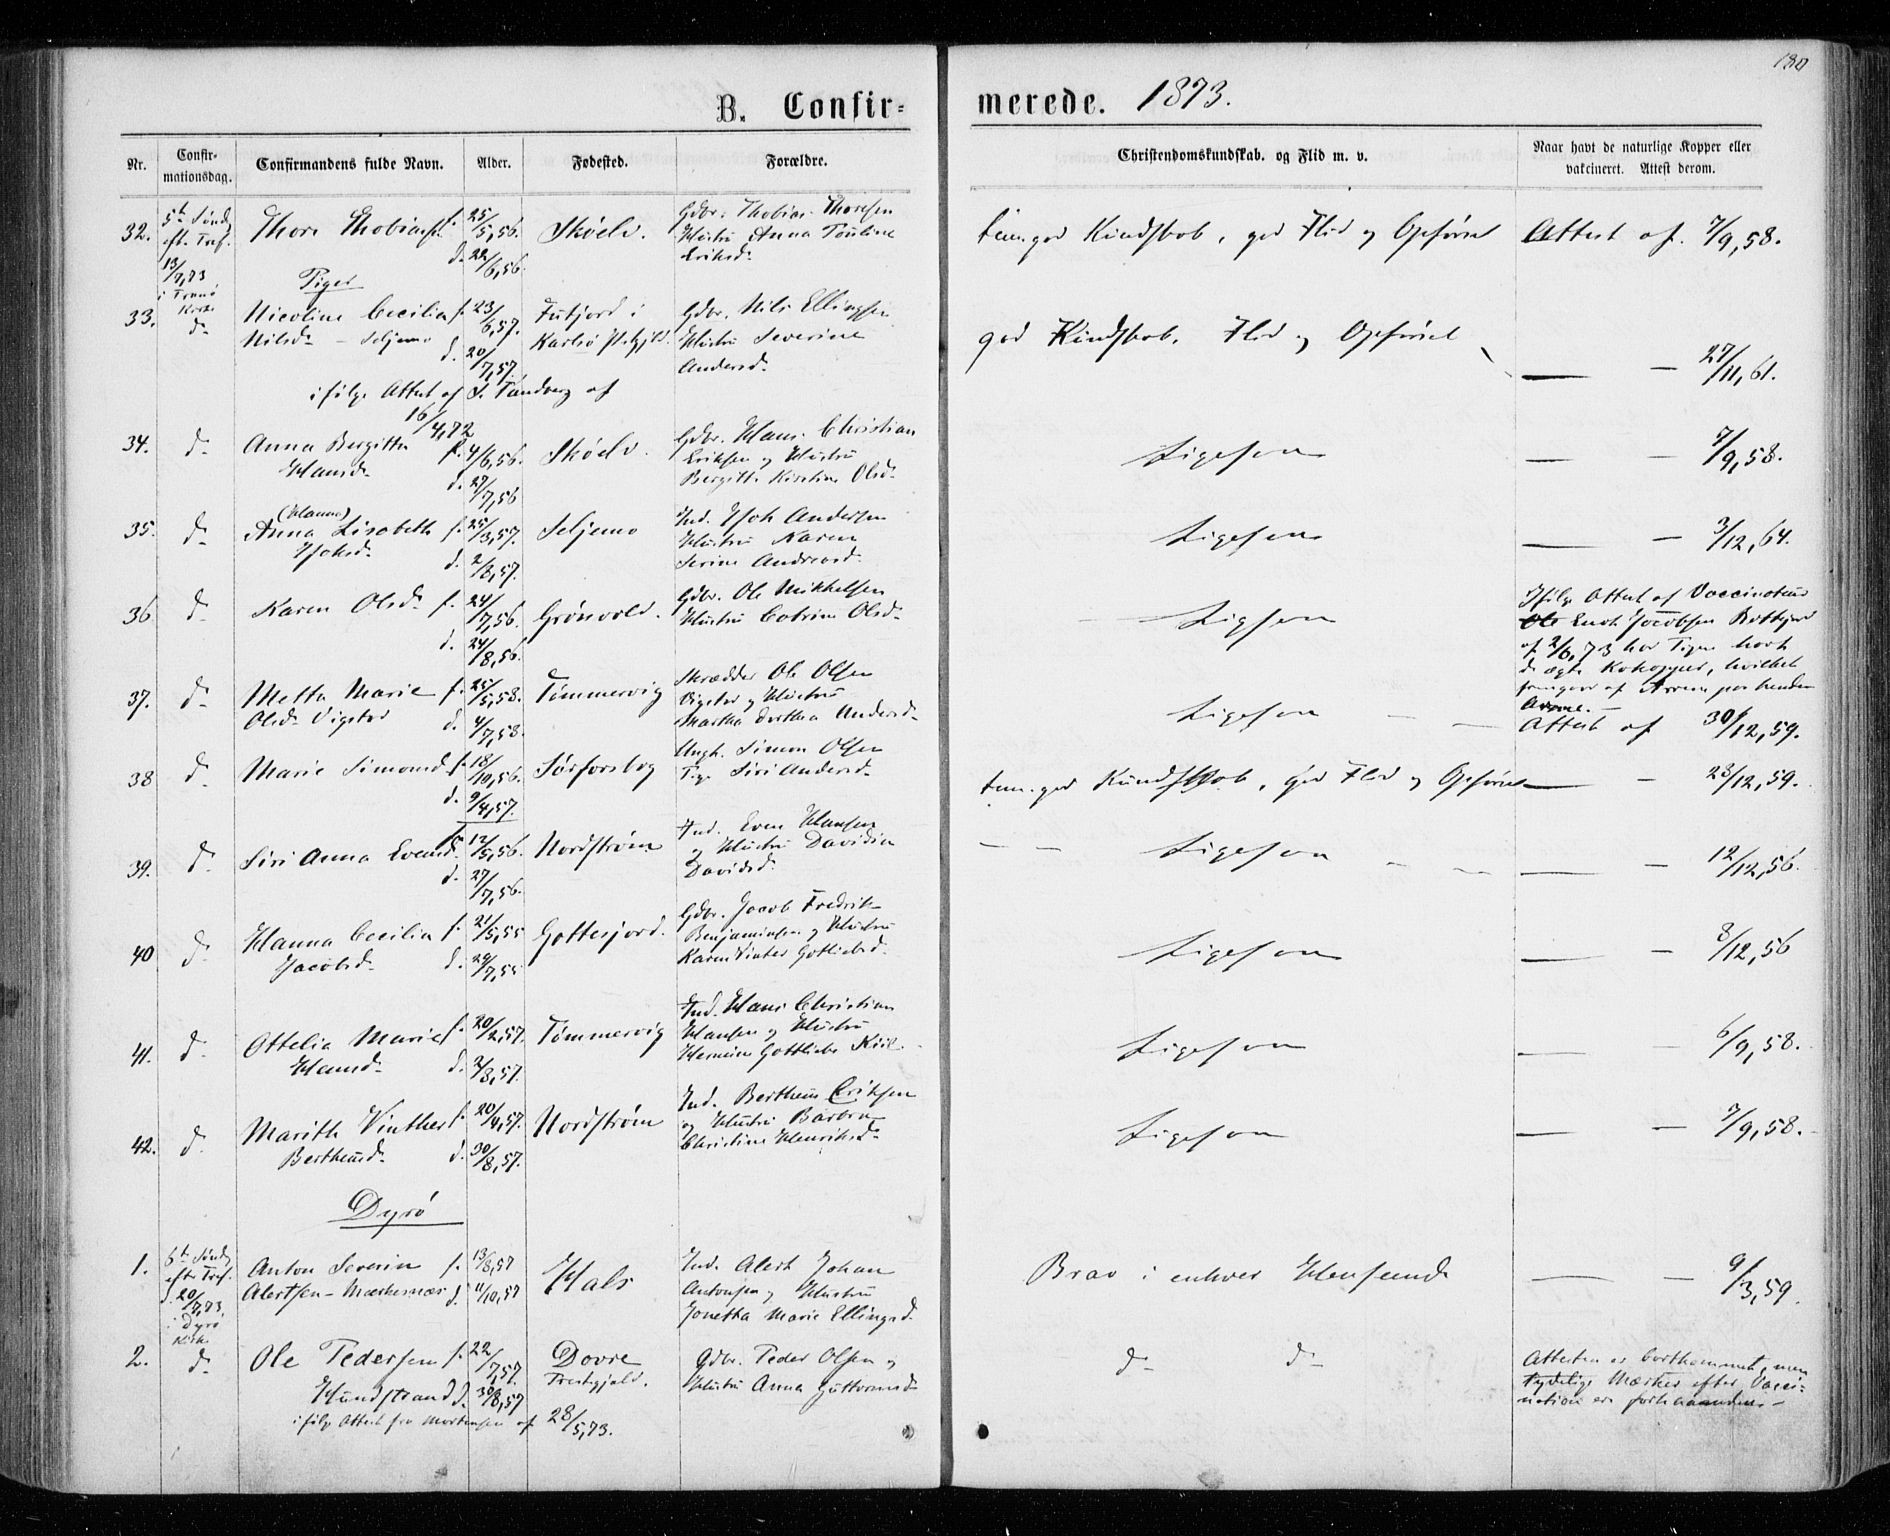 180
B. Confir=
merede. 1873.
Nr.
Confir-
mationsdag.
Confirmandens fulde Navn.
Alder.
Fødested.
Forældre.
Christendomskundskab. og Flid m. v.
Naar havt de naturlige Kopper eller
vakcineret. Attest derom.
32. 5te Sønd. Thore Thobias. f. 25/5,56. Skøelv. Gdbr. Thobias Thoresen
eft. Tref. d. 22/6,56. Hustru Anna Pauline
13/7,73 Eriksd.
tem. god Kundskab, god Flid og Opførsel Attest af 7/9,58.
i Tranø Kirke
Piger
33. d. Nicoline Cecilia f. 23/6,57. i Gdbr. Nils Ellingsen
Nilsd. - Seljemo d. 20/7,57. Karlsø Hustru Severine
Andersd.
god Kundskab, Flid og Opførsel — — 27/11,61.
ifølge Attest af S. Tandberg af
16/4,72
34. d. Anna Bergitta f. 4/6,56. Skøelv. Gdbr. Hans Christian
Hansd. d. 27/7,56 Eriksen og Hustru
Bergitte Kirstine Olsd.
Ligesom — — 7/9,58.
35. d. (Hanna)
Anna Lisabeth f. 25/3,57. Seljemo Ind. Isak Andersen
Isaksd. d. 2/8,57. Hustru Karen
Serine Andreasd.
Ligesom — — 3/12,64.
36. d. Karen Olsd. f. 24/7,56. Grønvold. Gdbr. Ole Mikkelsen
d. 24/8,56. Hustru Catrine Olsd.
Ligesom
Ifølge Attest af Vaccinateur
Enok Jacobsen
af 2/6,73 har Pigen havt
de ægte Kokopper, hvilket
fremgaar af Arrene paa hendes
Arme.
37. d. Metta Marie f. 25/5,58. Tømmervig Skrædder Ole Olsen
Olsd. Vigstad d. 4/7,58. Vigstad og Hustru
Martha Dorthea Andersd.
Ligesom Attest af 30/12,59.
38 d. Marie Simonsd. f. 18/10,56. Sørforsbog Ungk. Simon Olsen
d. 9/4,57. Pige Siri Andersd.
tem. god Kundskab, god Flid og Opførsel — — 28/12,59.
39. d. Siri Anna Evensd. f. 12/5,56. Nordstrøm Ind. Even Hansen
d. 27/7,56. og Hustru Davidia
Davidsd.
Ligesom — — 12/12,56.
40 d. Hanna Cecilia f. 21/5,55 Gottesjord. Gdbr. Jacob Fredrik
Jacobsd. d. 29/7,55 Benjaminsen og Hustru
Karen Vinter Gotliebsd.
Ligesom — — 8/12,56
41. d. Ottelia Marie f. 20/2,57. Tømmervig Ind. Hans Christian
Hansd. d. 2/8,57. Hansen og Hustru
Gottliebe Kiil.
Ligesom — — 6/9,58.
42. d. Marith Vinther f. 20/4,57. Nordstrøm Ind. Bertheus Eriksen
Bertheusd. d. 30/8,57. og Hustru Barbra
Christine Henriksd.
Ligesom — — 7/9,58.
Dyrø
1. 6te Sønd. Anton Severin f. 13/8,57 Hals Ind. Alert Johan
efter Tref. Alertsen - d. 11/10,57 Antonsen og Hustru
d. 20/7,73. Jonetta Marie Ellingsd.
i Dyrø Kirke
Brav i enhver Henseende — — 9/3,59.
2. d. Ole Pedersen f. 22/7,57. Dovre Gdbr. Peder Olsen og
Hundstrand d. 30/8,57 Prestegjeld. Hustru Anna Guttormsd.
ifølge Attest fra Mortensen af 28/5,73.
d. d. Attesten er bortkommet, men
tydelige Mærker efter Vacci-
nation ere forhaanden -